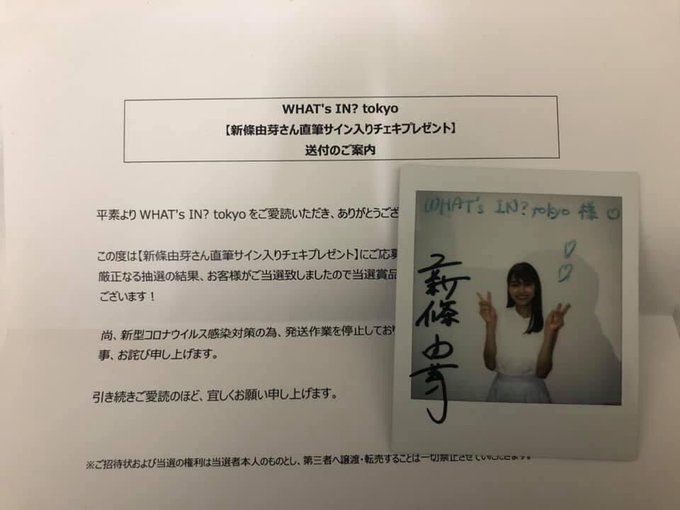 WHAT's IN? tokyo
【新條由芽さん直筆サイン入りチェキプレゼント】
送付のご案内
平素より WHAT's IN? tokyo をご愛読いただき、ありがとうござ
この度は【新條由芽さん直筆サイン入りチェキプレゼント】にご応募
厳正なる抽選の結果、お客様がご当選致しましたので当選賞品
ございます！
尚、新型コロナウイルス感染対策の為、発送作業を停止してお
事、お詫び申し上げます。
引き続きご愛読のほど、宜しくお願い申し上げます。
※ご招待状および当選の権利は当選者本人のものとし、第三者へ譲渡・転売することは一切禁止させていただきます。
WHAT's IN? tokyo 様 ♡
新條由芽